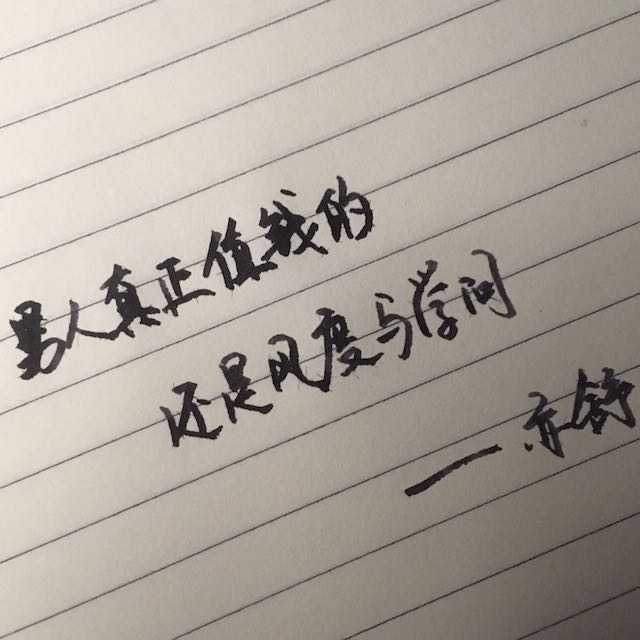 男人真正值钱的
还是风度与学问
— 亦舒